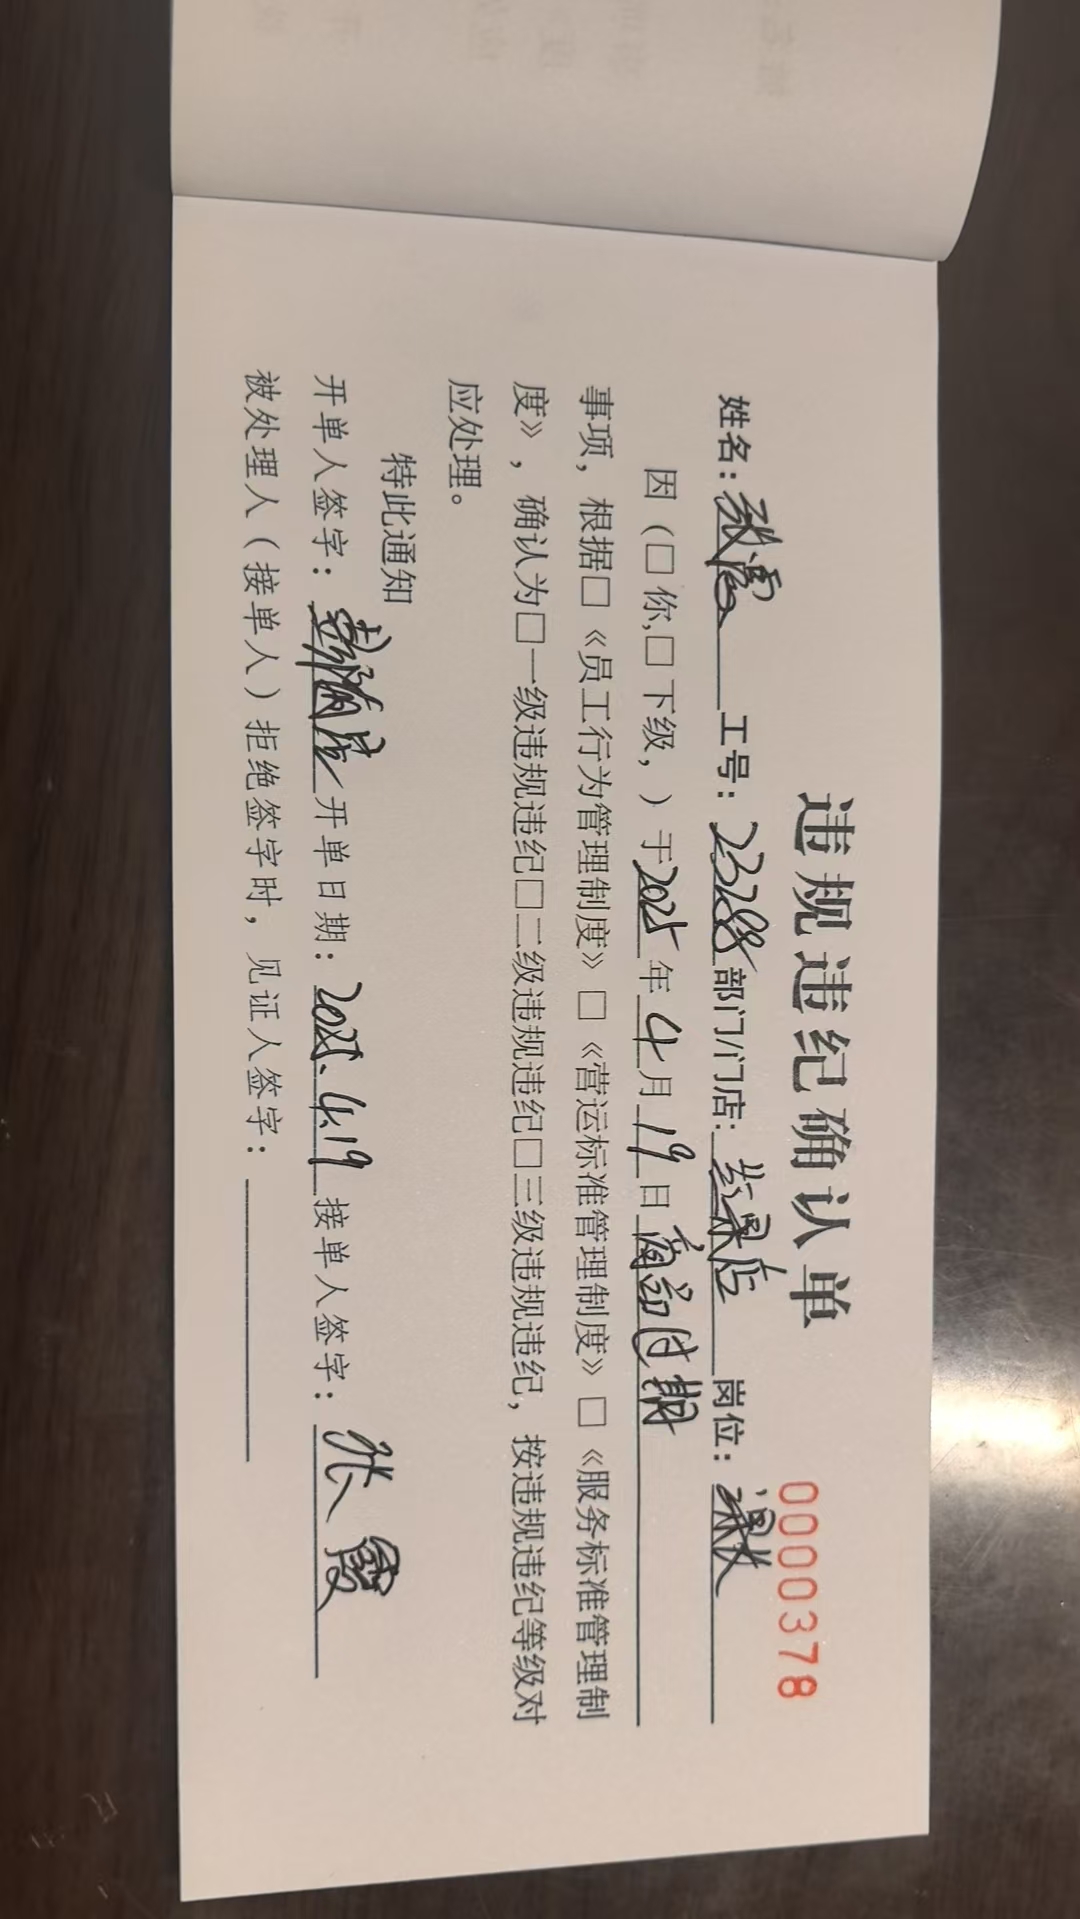 违规违纪确认单
0000378
姓名：张霞 工号：23288 部门/门店： 店 岗位：
因（□ 你,□ 下级，）于2025年4月19日 商品过期
事项，根据□《员工行为管理制度》□《营运标准管理制度》□《服务标准管理制
度》，确认为□一级违规违纪□二级违规违纪□三级违规违纪，按违规违纪等级对
应处理。
特此通知
开单人签字： 开单日期：2025.4.19 接单人签字：张霞
被处理人（接单人）拒绝签字时，见证人签字：